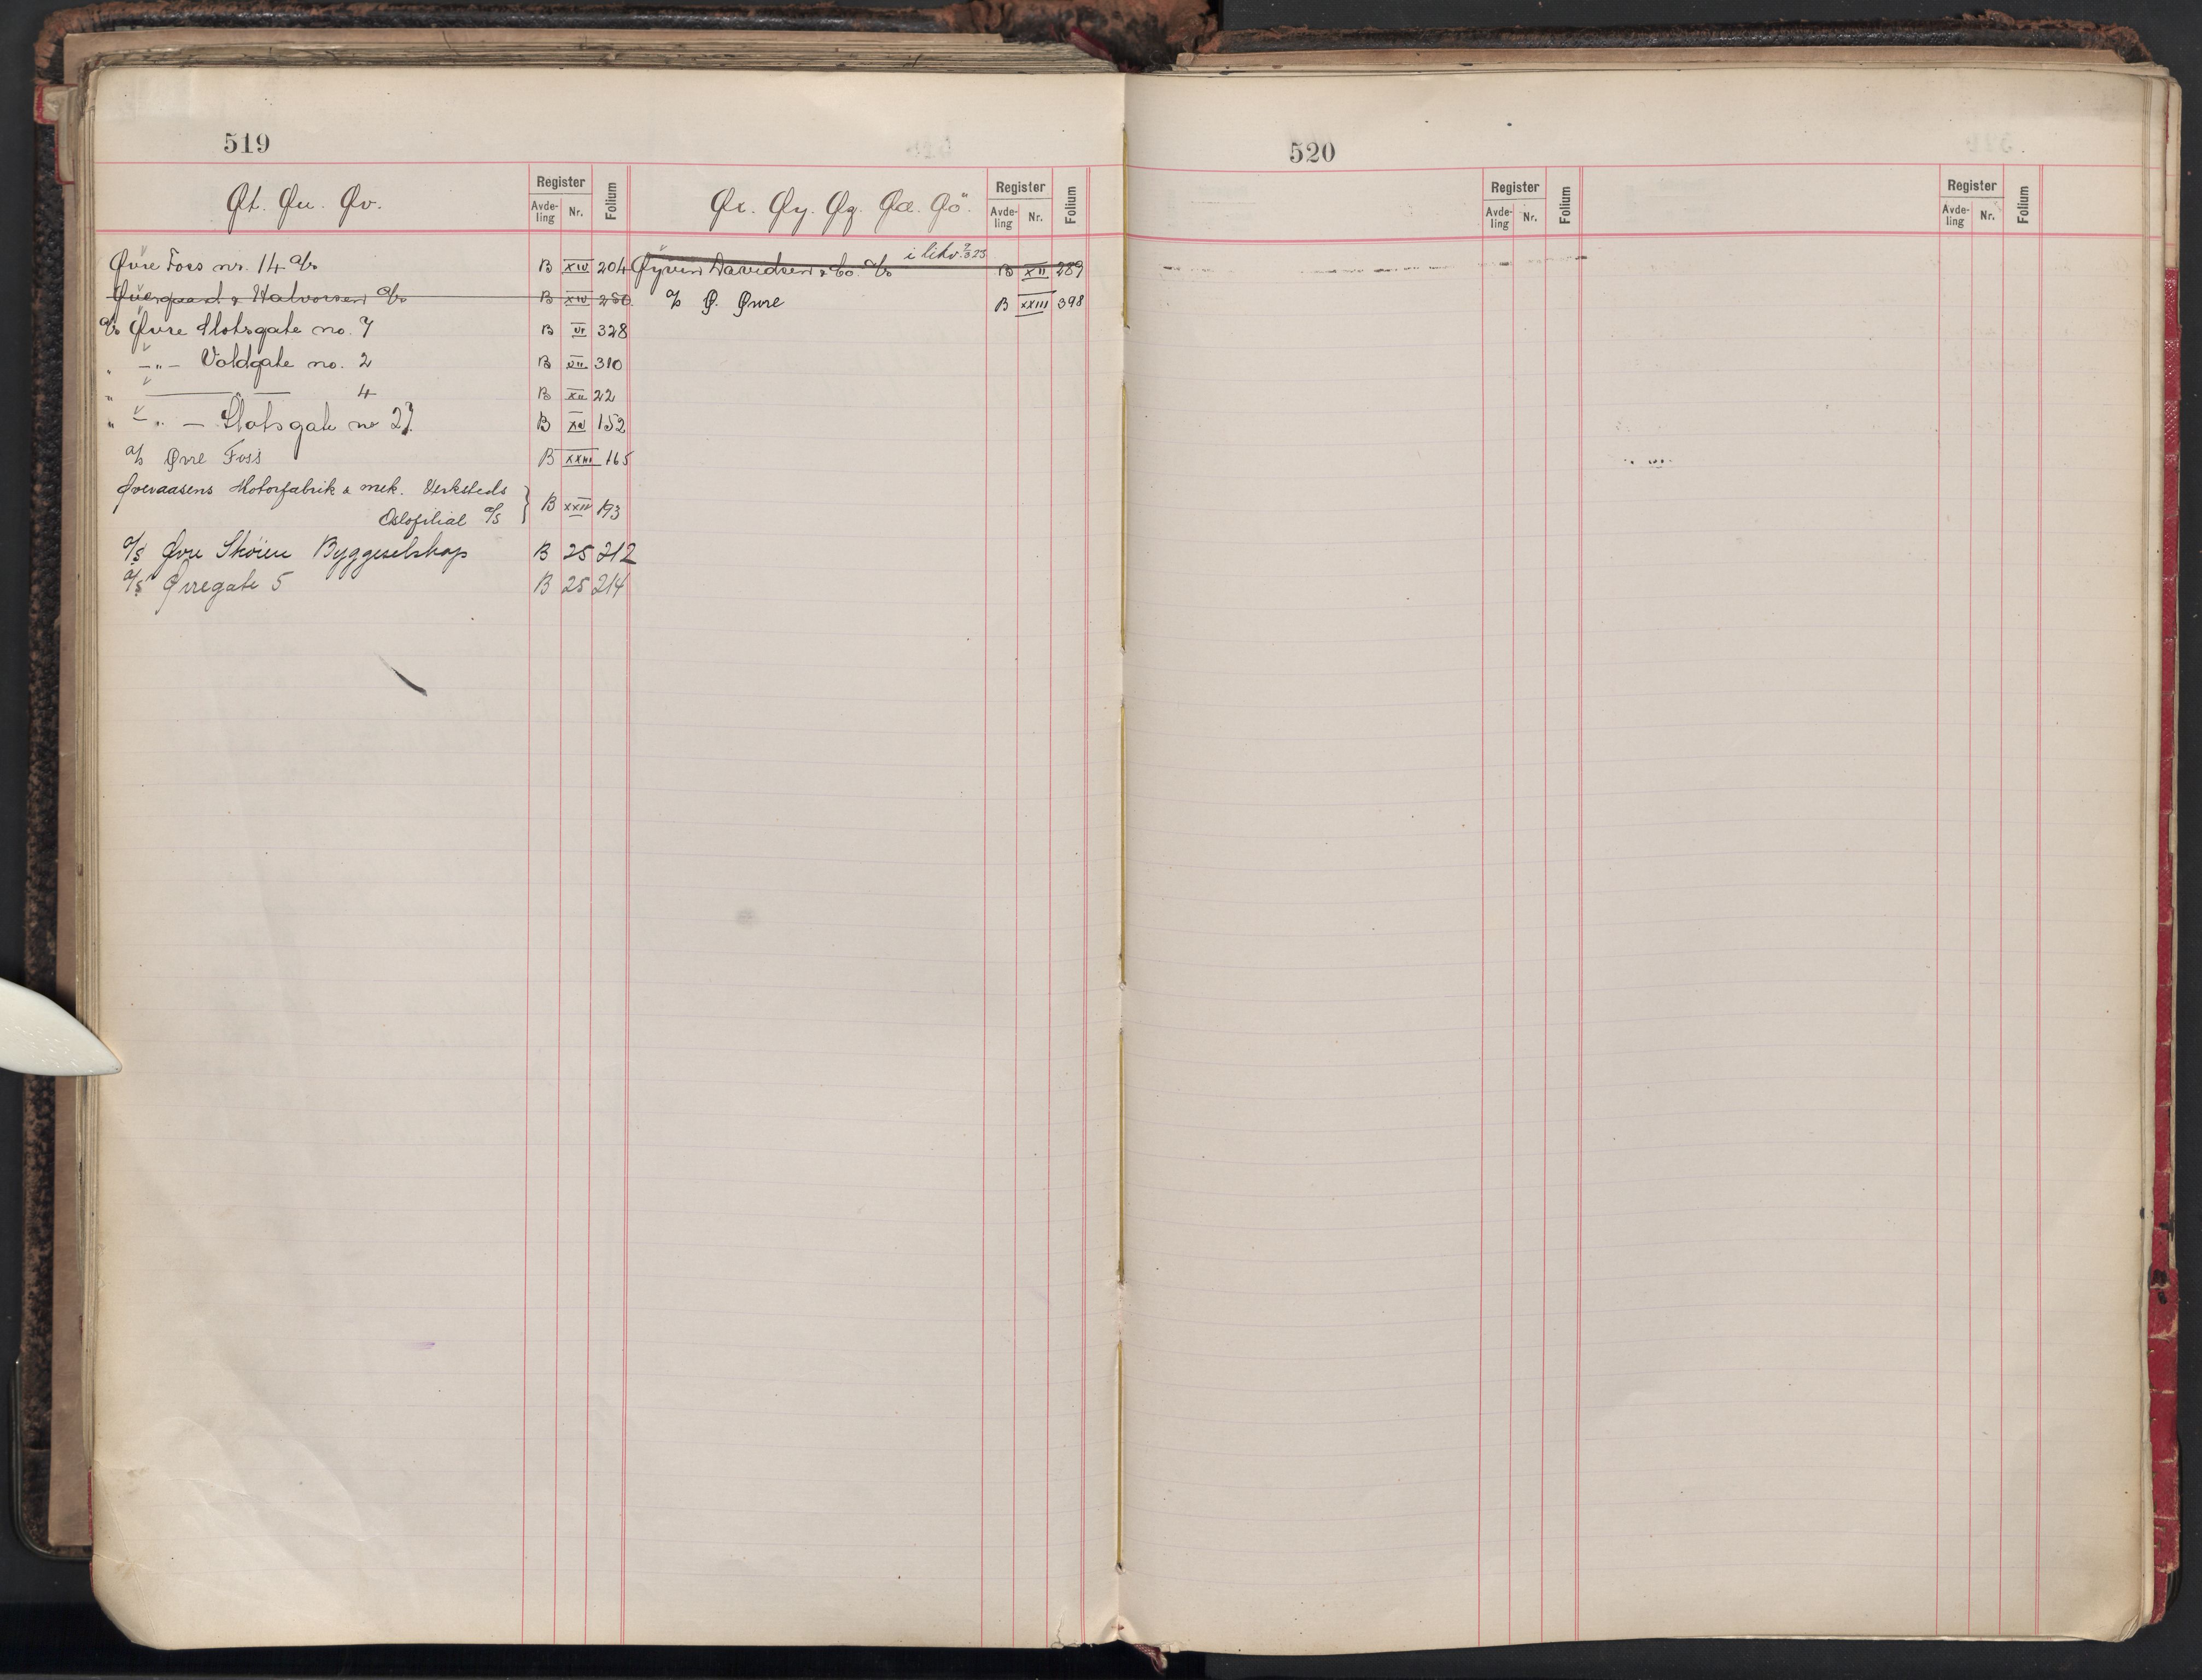 519
Øt. Øu. Øv.
Register
Avde-
ling
Nr.
Folium
Øvre Foss nr. 14 a/s B XIV 204
Øvergaard & Halvorsen a/s B XIV 250
a/s Øvre Slotsgate no. 7 B VI 328
" -"- Voldgate no. 2 B VII 310
" — — 4 B XII 22
" -"- — Slotsgate no 27. B XV 152
a/s Øvre Foss B XXIII 165
Øveraasens Motorfabrik & mek. Verksteds
Oslofilial a/s } B XXIV 193
a/s Øvre Skøien Byggeselskap B 25 212
a/s Øvregate 5 B 25 214
Øx. Øy. Øz. Øæ. Øö.
Register
Avde-
ling
Nr.
Folium
i likv.
Øyvin Davidsen & Co. a/s B XII 289
a/s Ø. Øvre B XXIII 398
520
Register
Avde-
ling
Nr.
Folium
Register
Avde-
ling
Nr.
Folium